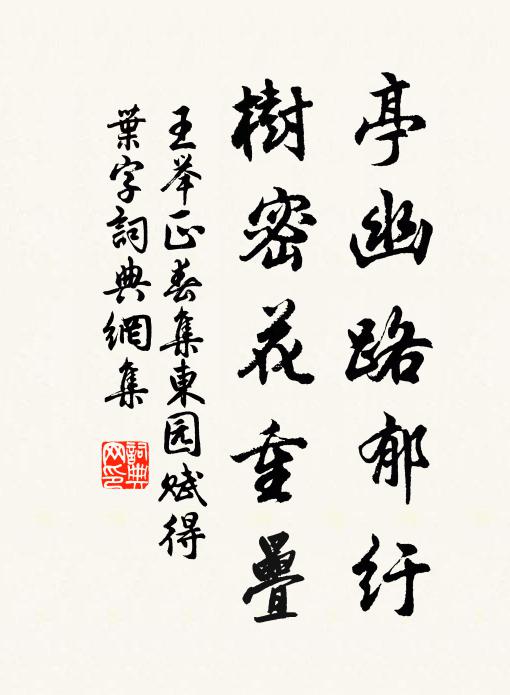 亭幽路郁纡
樹密花重疊
王举正春集東园赋得
葉字詞典網集
詞典网印